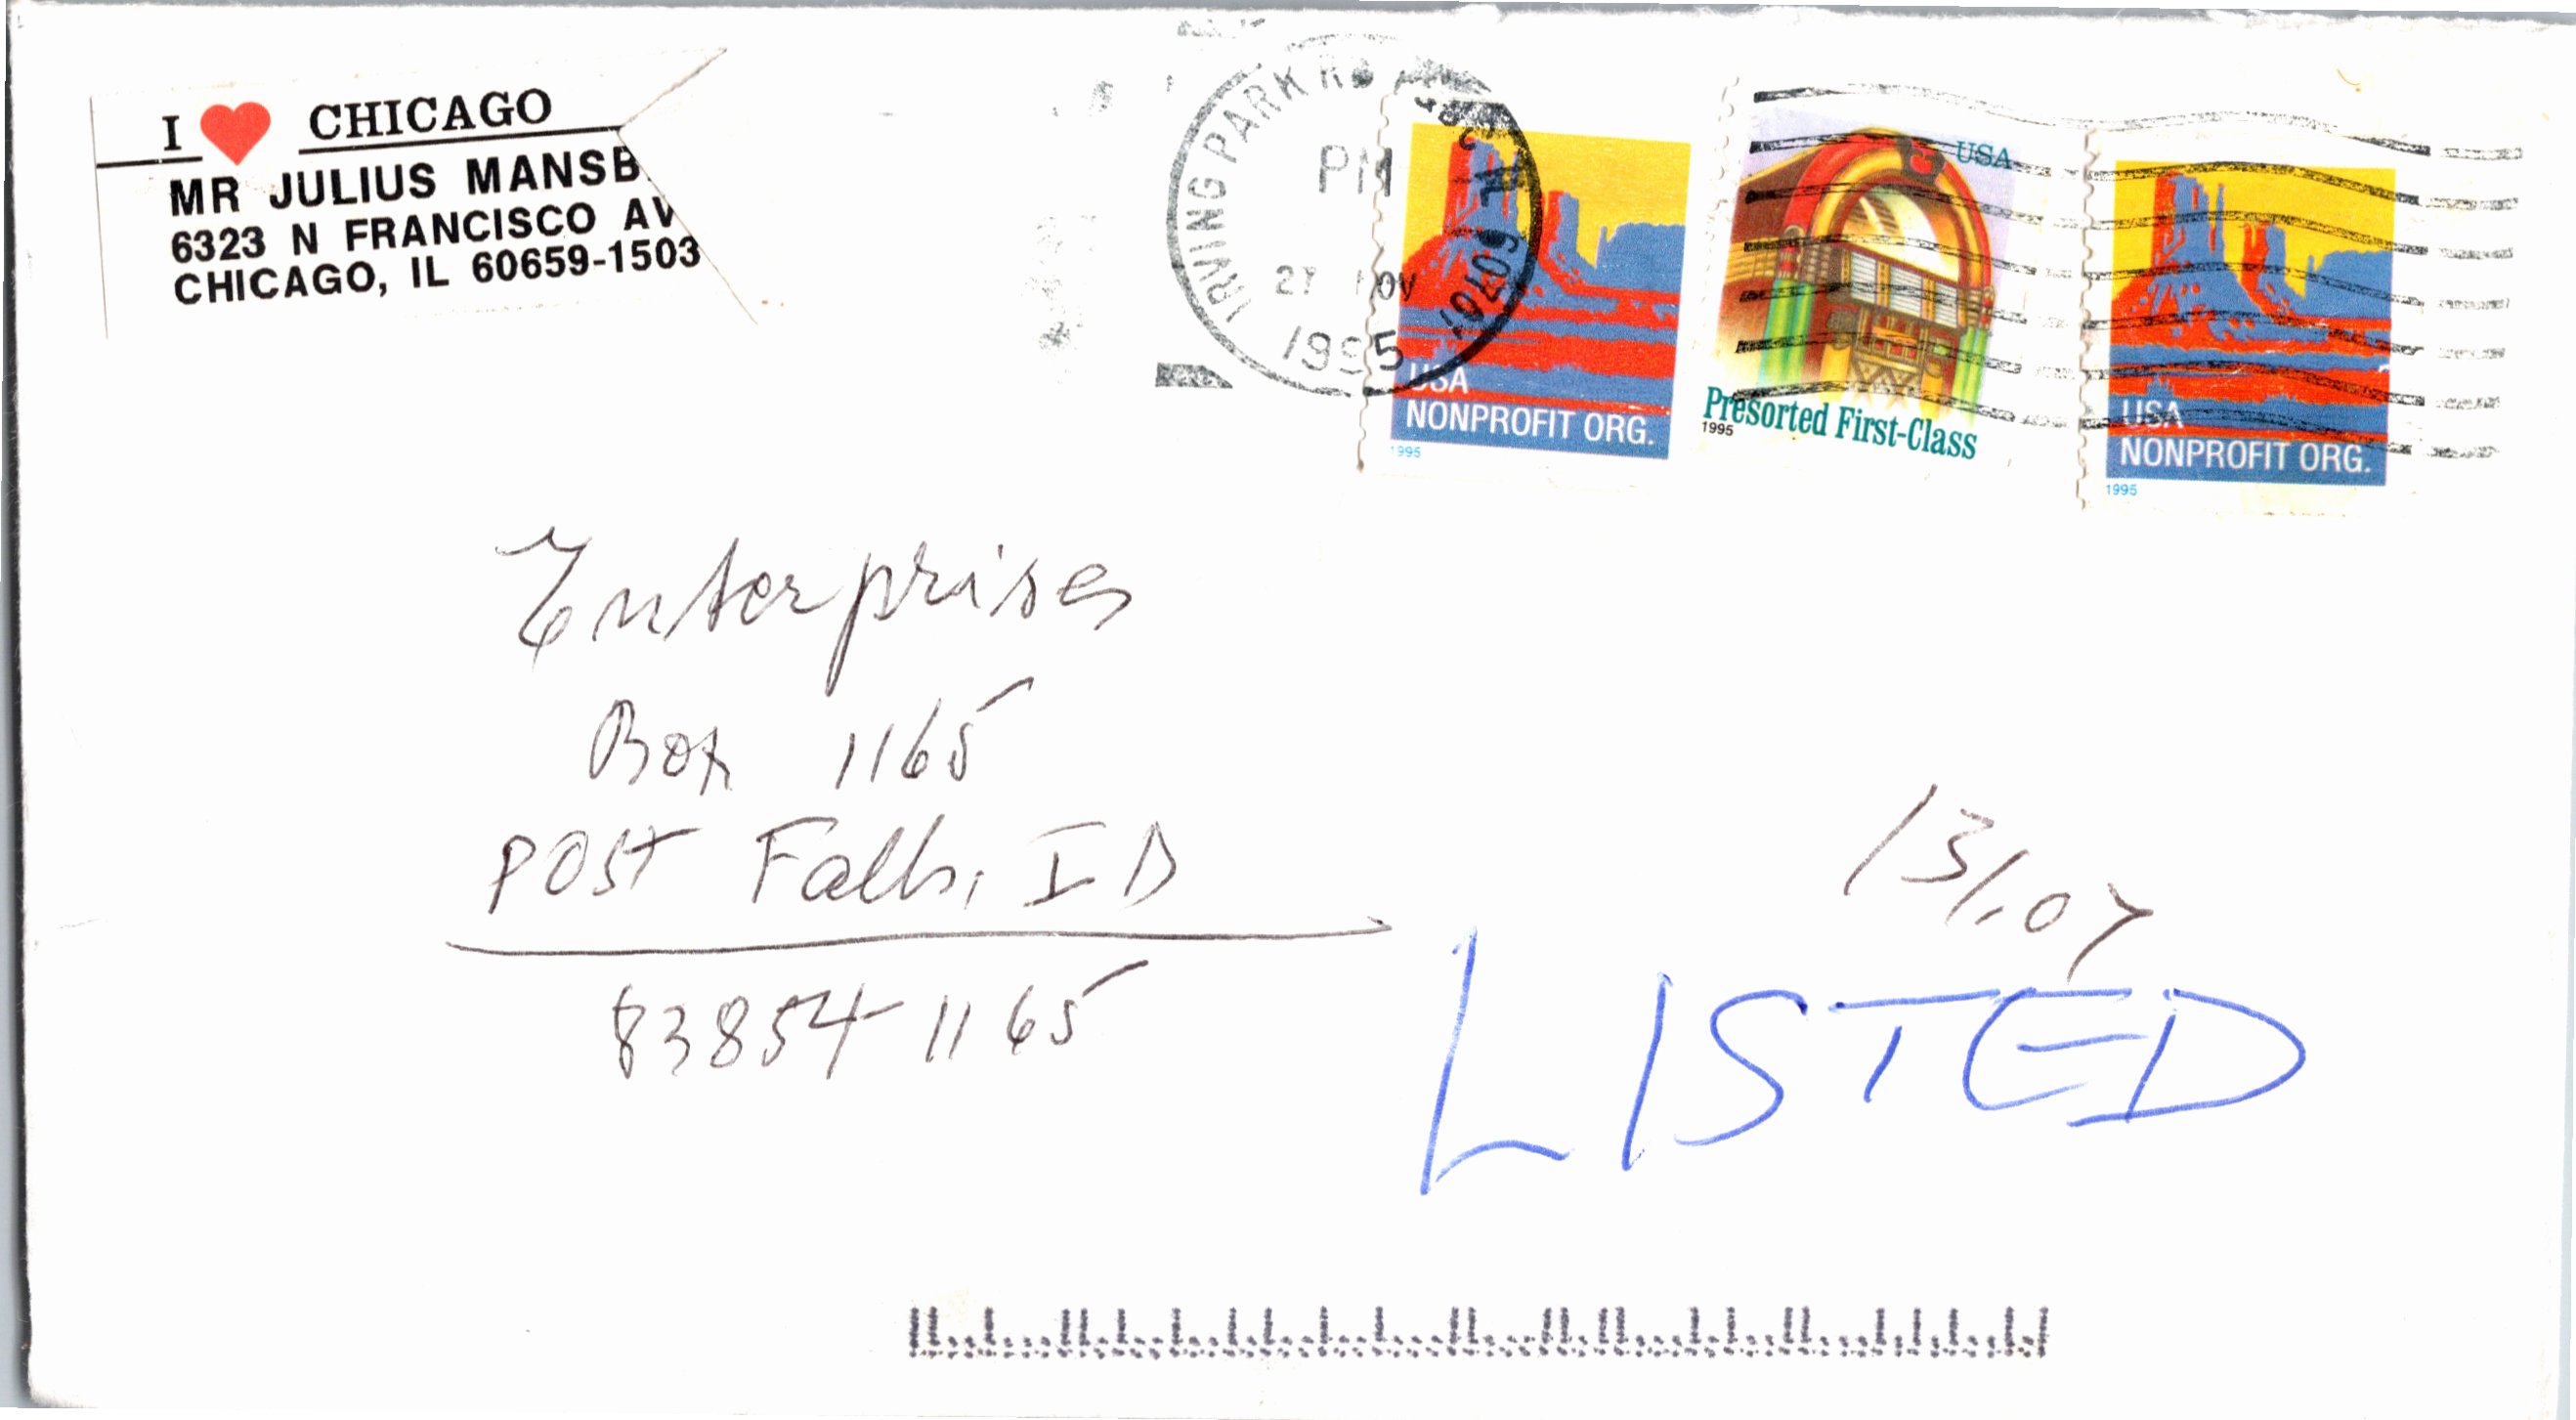 I ❤ CHICAGO
MR JULIUS MANSB
6323 N FRANCISCO AV
CHICAGO, IL 60659-1503
IRVING PARK RD
PM
27 NOV
1995
60709
USA
NONPROFIT ORG.
1995
USA
Presorted First-Class
1995
USA
NONPROFIT ORG.
1995
Enterprises
Box 1165
Post Falls, ID
83854-1165
131.07
LISTED